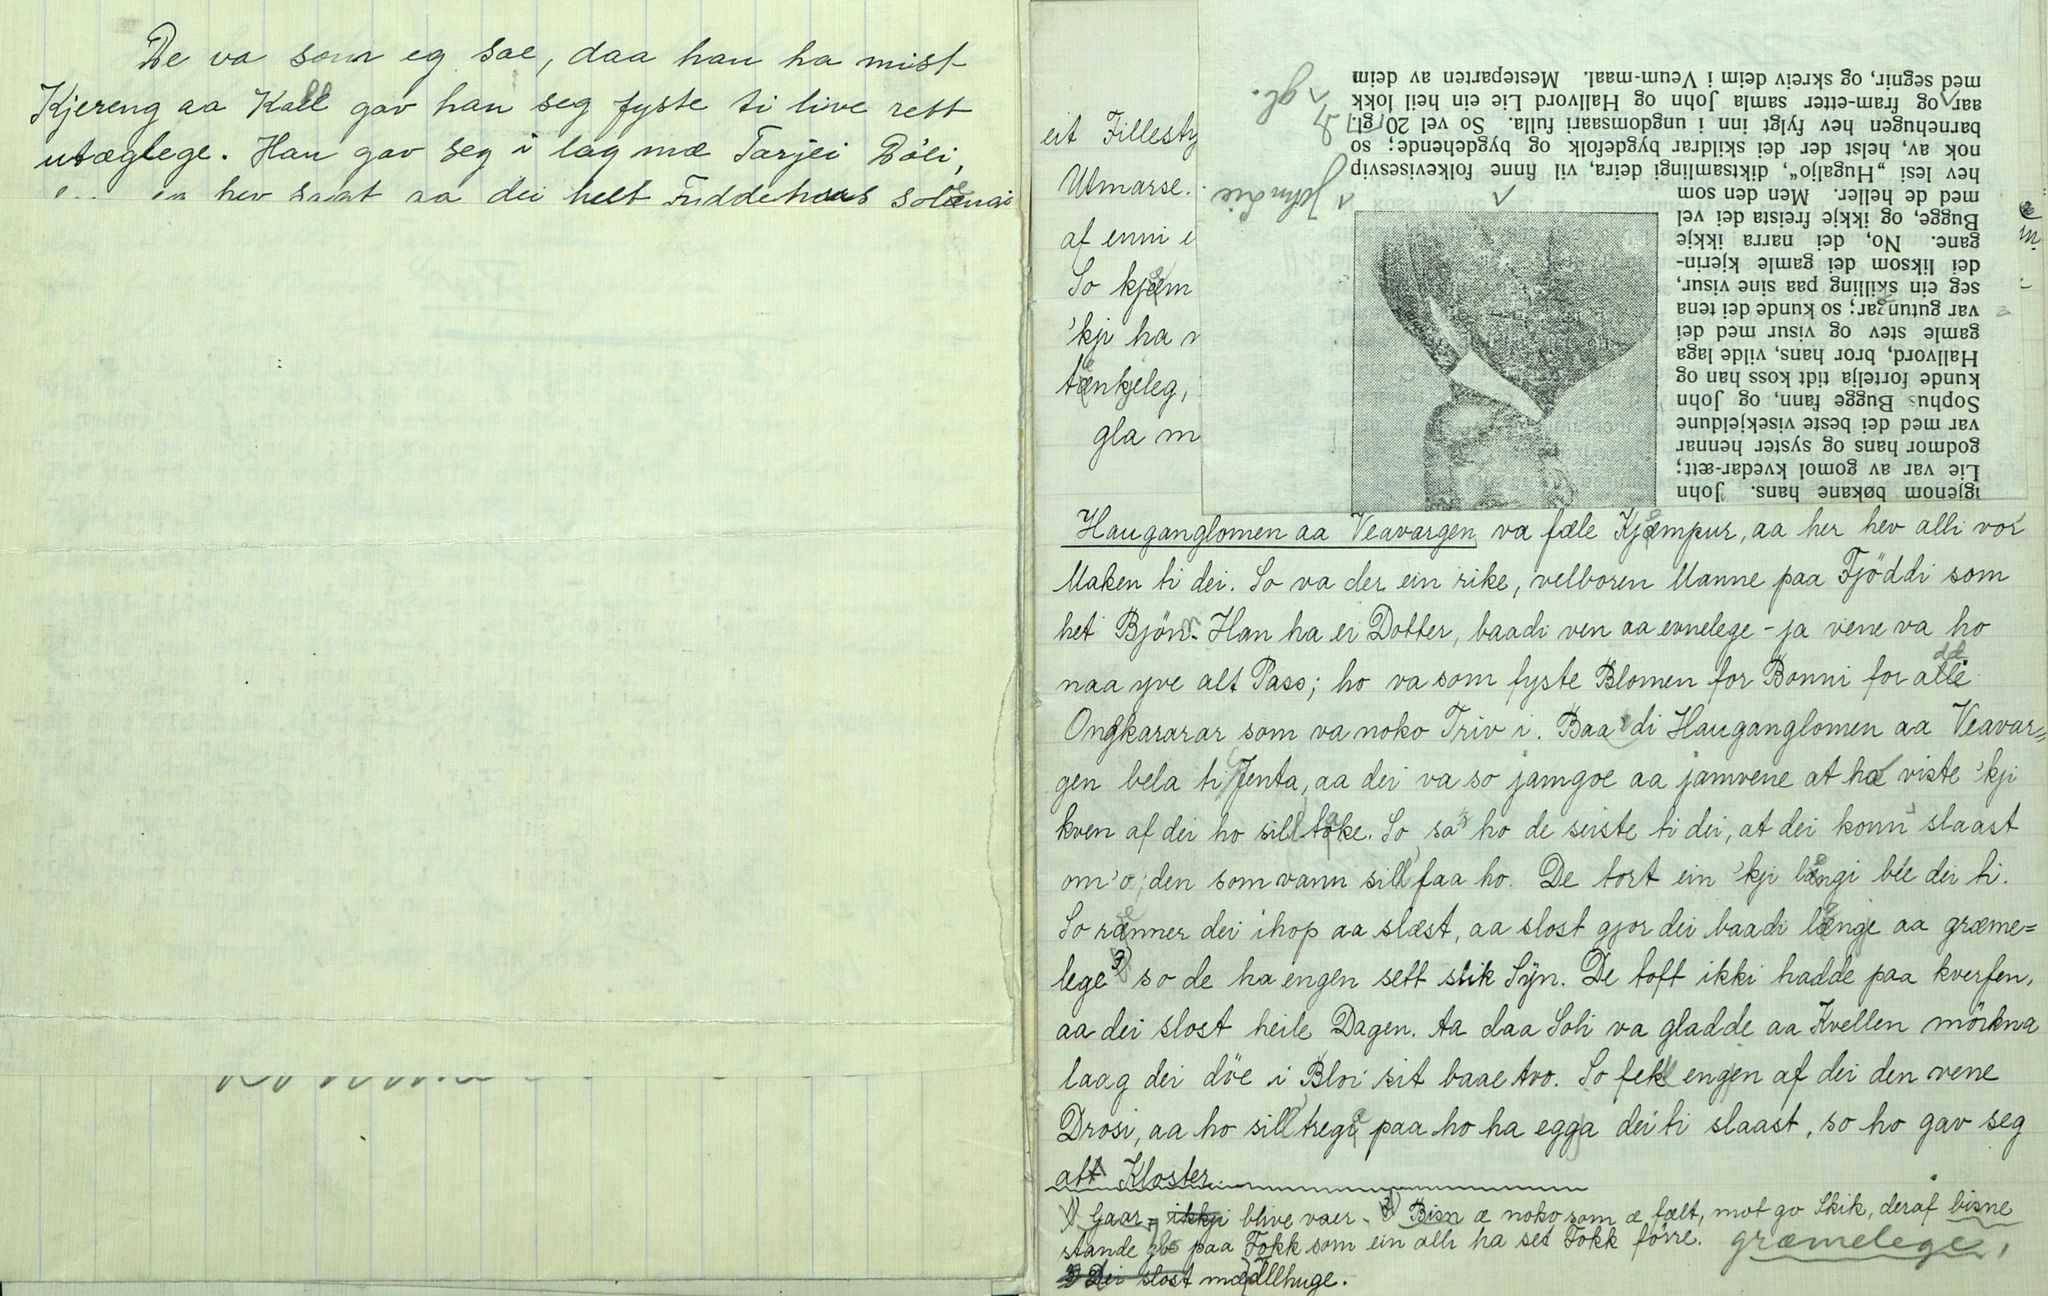 De va som eg sae, daa han ha mist
Kjereng aa Kall gav han seg fyste ti live rett
utæglege. Han gav seg i lag mæ Tarjei Böli,
hev sagt aa dei helt Fuddehaus
eit Fillesty
Utmarse.
af enni e
So kjæm
'kji ha
tænkjeleg,
gla m
igjenom bøkane hans. John
Lie var av gomol kvedar-ætt;
godmor hans og syster hennar
var med dei beste visekjeldune
Sophus Bugge fann, og John
kunde fortelja tidt koss han og
Hallvord, bror hans, vilde laga
gamle stev og visur med dei
var gutungar; so kunde dei tena
seg ein skilling paa sine visur,
dei liksom dei gamle kjerin-
gane. No, dei narra ikkje
Bugge, og ikkje freista dei vel
med de heller. Men den som
hev lesi „Hugaljo“, diktsamlingi deira, vil finne folkevisesvip
nok av, helst der dei skildrar bygdefolk og bygdehende; so
barnehugen hev fylgt inn i ungdomsaari fulla. So vel 20 gl.
aar og fram-etter samla John og Hallvord Lie ein heil lokk
med segnir, og skreiv deim i Veum-maal. Mesteparten av deim
John Lie
gl.
Hauganglomen aa Veavargen va fæle Kjæmpur, aa her hev alli vor
Maken ti dei. So va der ein rike, velboren Manne paa Fjöddi som
het Bjönn. Han ha ei Dotter, baadi ven aa evnelege - ja vene va ho
naa yve alt Pass; ho va som fyste Blomen for Bonni for alle
Ongkararar som va noko Triv i. Baadi Hauganglomen aa Veavar=
gen bela ti Jenta, aa dei va so jamgoe aa jamvene at ho viste 'kji
kven af dei ho sill take. So sa ho de seiste ti dei, at dei konn slaast
om 'o; den som vann sill faa ho. De tort ein 'kji længi bie dei ti.
So rænner dei ihop aa slæst, aa slost gjor dei baadi længje aa græme=
lege 3) so de ha engen sett slik Syn. De toft ikki hadde paa kverfen,
aa dei slost heile Dagen. Aa daa Soli va gladde aa Kvellen mörkna
laag dei döe i Bloi sit baae tvo. So fekk engjen af dei den vene
Drosi, aa ho sill trege paa ho ha eggja dei ti slaast, so ho gav seg
att Kloster.
1) Gaar - ikkji blive vaer. 2) Bisn æ noko som æ fælt, mot go Skik, deraf bisne
stande paa Fokk som ein alli ha set Fokk förre. græmelege,
3 Dei slost mæ Illhuge.